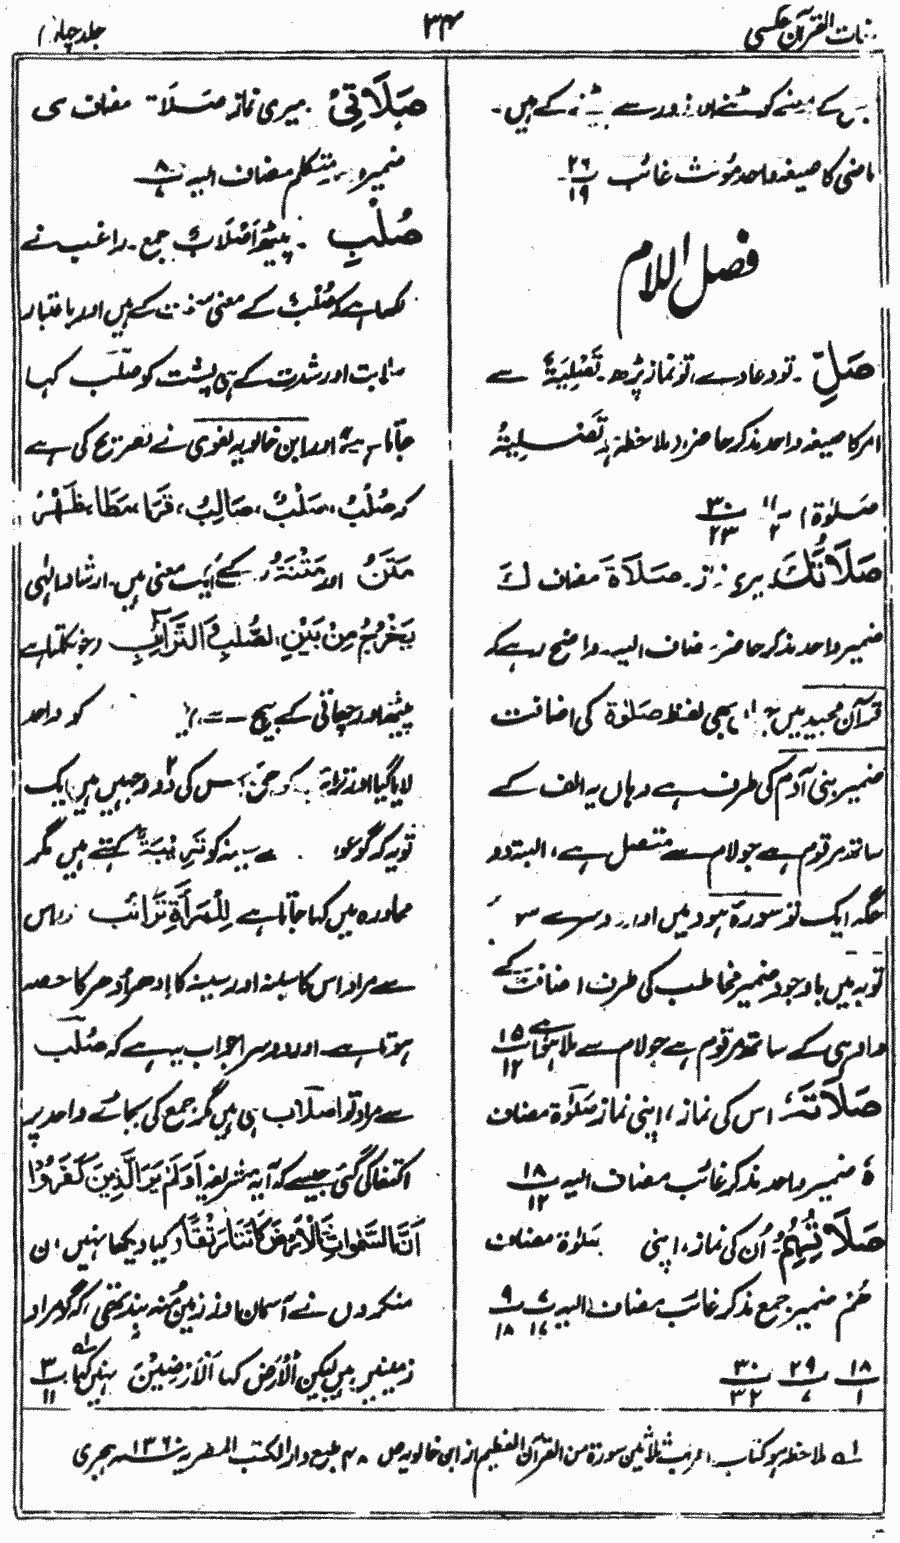 لغات القرآن عکسی
۳۴
جلد چہارم
جس کے معنے کوٹنے اور زور سے پیٹنے کے ہیں۔
ماضی کا صیغہ واحد مؤنث غائب ۲۶/۱۹
فصل اللام
صَلِّ۔ تو دعا دے، تو نماز پڑھ۔ تَصْلِیَۃٌ سے
امر کا صیغہ واحد مذکر حاضر (ملاحظہ ہو تَصْلِیَۃٌ
صَلٰوۃ) ۱۱/۲ ۳۰/۲۳
صَلَاتَكَ۔ تیری نماز۔ صَلَاۃ مضاف كَ
ضمیر واحد مذکر حاضر مضاف الیہ۔ واضح رہے کہ
قرآن مجید میں جہاں بھی لفظ صَلٰوۃ کی اضافت
ضمیر بنی آدم کی طرف ہے وہاں یہ الف کے
ساتھ مرقوم ہے جو لام سے متصل ہے، البتہ دو
جگہ ایک تو سورۃ ہود میں اور دوسرے سورۃ
توبہ میں باوجود ضمیر مخاطب کی طرف اضافت کے
واو ہی کے ساتھ مرقوم ہے جو لام سے ملا ہوا ہے ۱۵/۱۲
صَلَاتَہٗ۔ اس کی نماز، اپنی نماز صَلٰوۃ مضاف
ہٗ ضمیر واحد مذکر غائب مضاف الیہ ۱۸/۱۲
صَلَاتُہُمْ۔ اُن کی نماز، اپنی صَلٰوۃ مضاف
ہُمْ ضمیر جمع مذکر غائب مضاف الیہ ۷/۱۷ ۹/۱۸
۱۸/۱ ۲۹/۷ ۳۰/۳۲
صَلَاتِیْ۔ میری نماز صَلَاۃ مضاف ی
ضمیر واحد متکلم مضاف الیہ ۸/۷
صُلْبِ۔ پیٹھ اَصْلَاب جمع۔ راغب نے
لکھا ہے کہ صُلْبٌ کے معنی سخت کے ہیں اور باعتبار
صلابت اور شدت کے ہی پشت کو صلب کہا
جاتا ہے اور ابن خالویہ لغوی نے تصریح کی ہے
کہ صُلْبٌ، صَلَبٌ، صَالِبٌ، قَرَا، مَطَا، ظَہْرٌ
مَتْنٌ اور مَتْنَۃٌ کے ایک معنی ہیں۔ ارشاد الٰہی
یَخْرُجُ مِنْ بَیْنِ الصُّلْبِ وَالتَّرَائِبِ (جو نکلتا ہے
پیٹھ اور چھاتی کے بیچ سے) کو واحد
لایا گیا اور ترائب کو جمع اس کی دو وجہیں ہیں ایک
تو یہ کہ گو سینہ کو تَرِیْبَۃٌ کہتے ہیں مگر
محاورہ میں کہا جاتا ہے لِلْمَرْأَۃِ تَرَائِب اور اس
سے مراد اس کا سینہ اور سینہ کا اِدھر اُدھر کا حصہ
ہوتا ہے۔ اور دوسرا جواب یہ ہے کہ صُلب
سے مراد تو اصلاب ہی ہیں مگر جمع کی بجائے واحد پر
اکتفا کی گئی جیسے کہ آیہ شریفہ اَوَلَمْ یَرَ الَّذِیْنَ کَفَرُوْا
اَنَّ السَّمٰوَاتِ وَالْاَرْضَ کَانَتَا رَتْقًا (کیا دیکھا نہیں ان
منکروں نے آسمان اور زمین مُنہ بند تھی) کہ گو مراد
زمینیں ہیں لیکن اَلْاَرْض کہا اَلْاَرَضِیْنَ نہیں کہا ۳/۱۱
لہ ملاحظہ ہو کتاب اعراب ثلاثین سورۃ من القرآن العظیم از ابن خالویہ ص ۴۸ طبع دار الکتب المصریہ ۱۳۶۰ ہجری